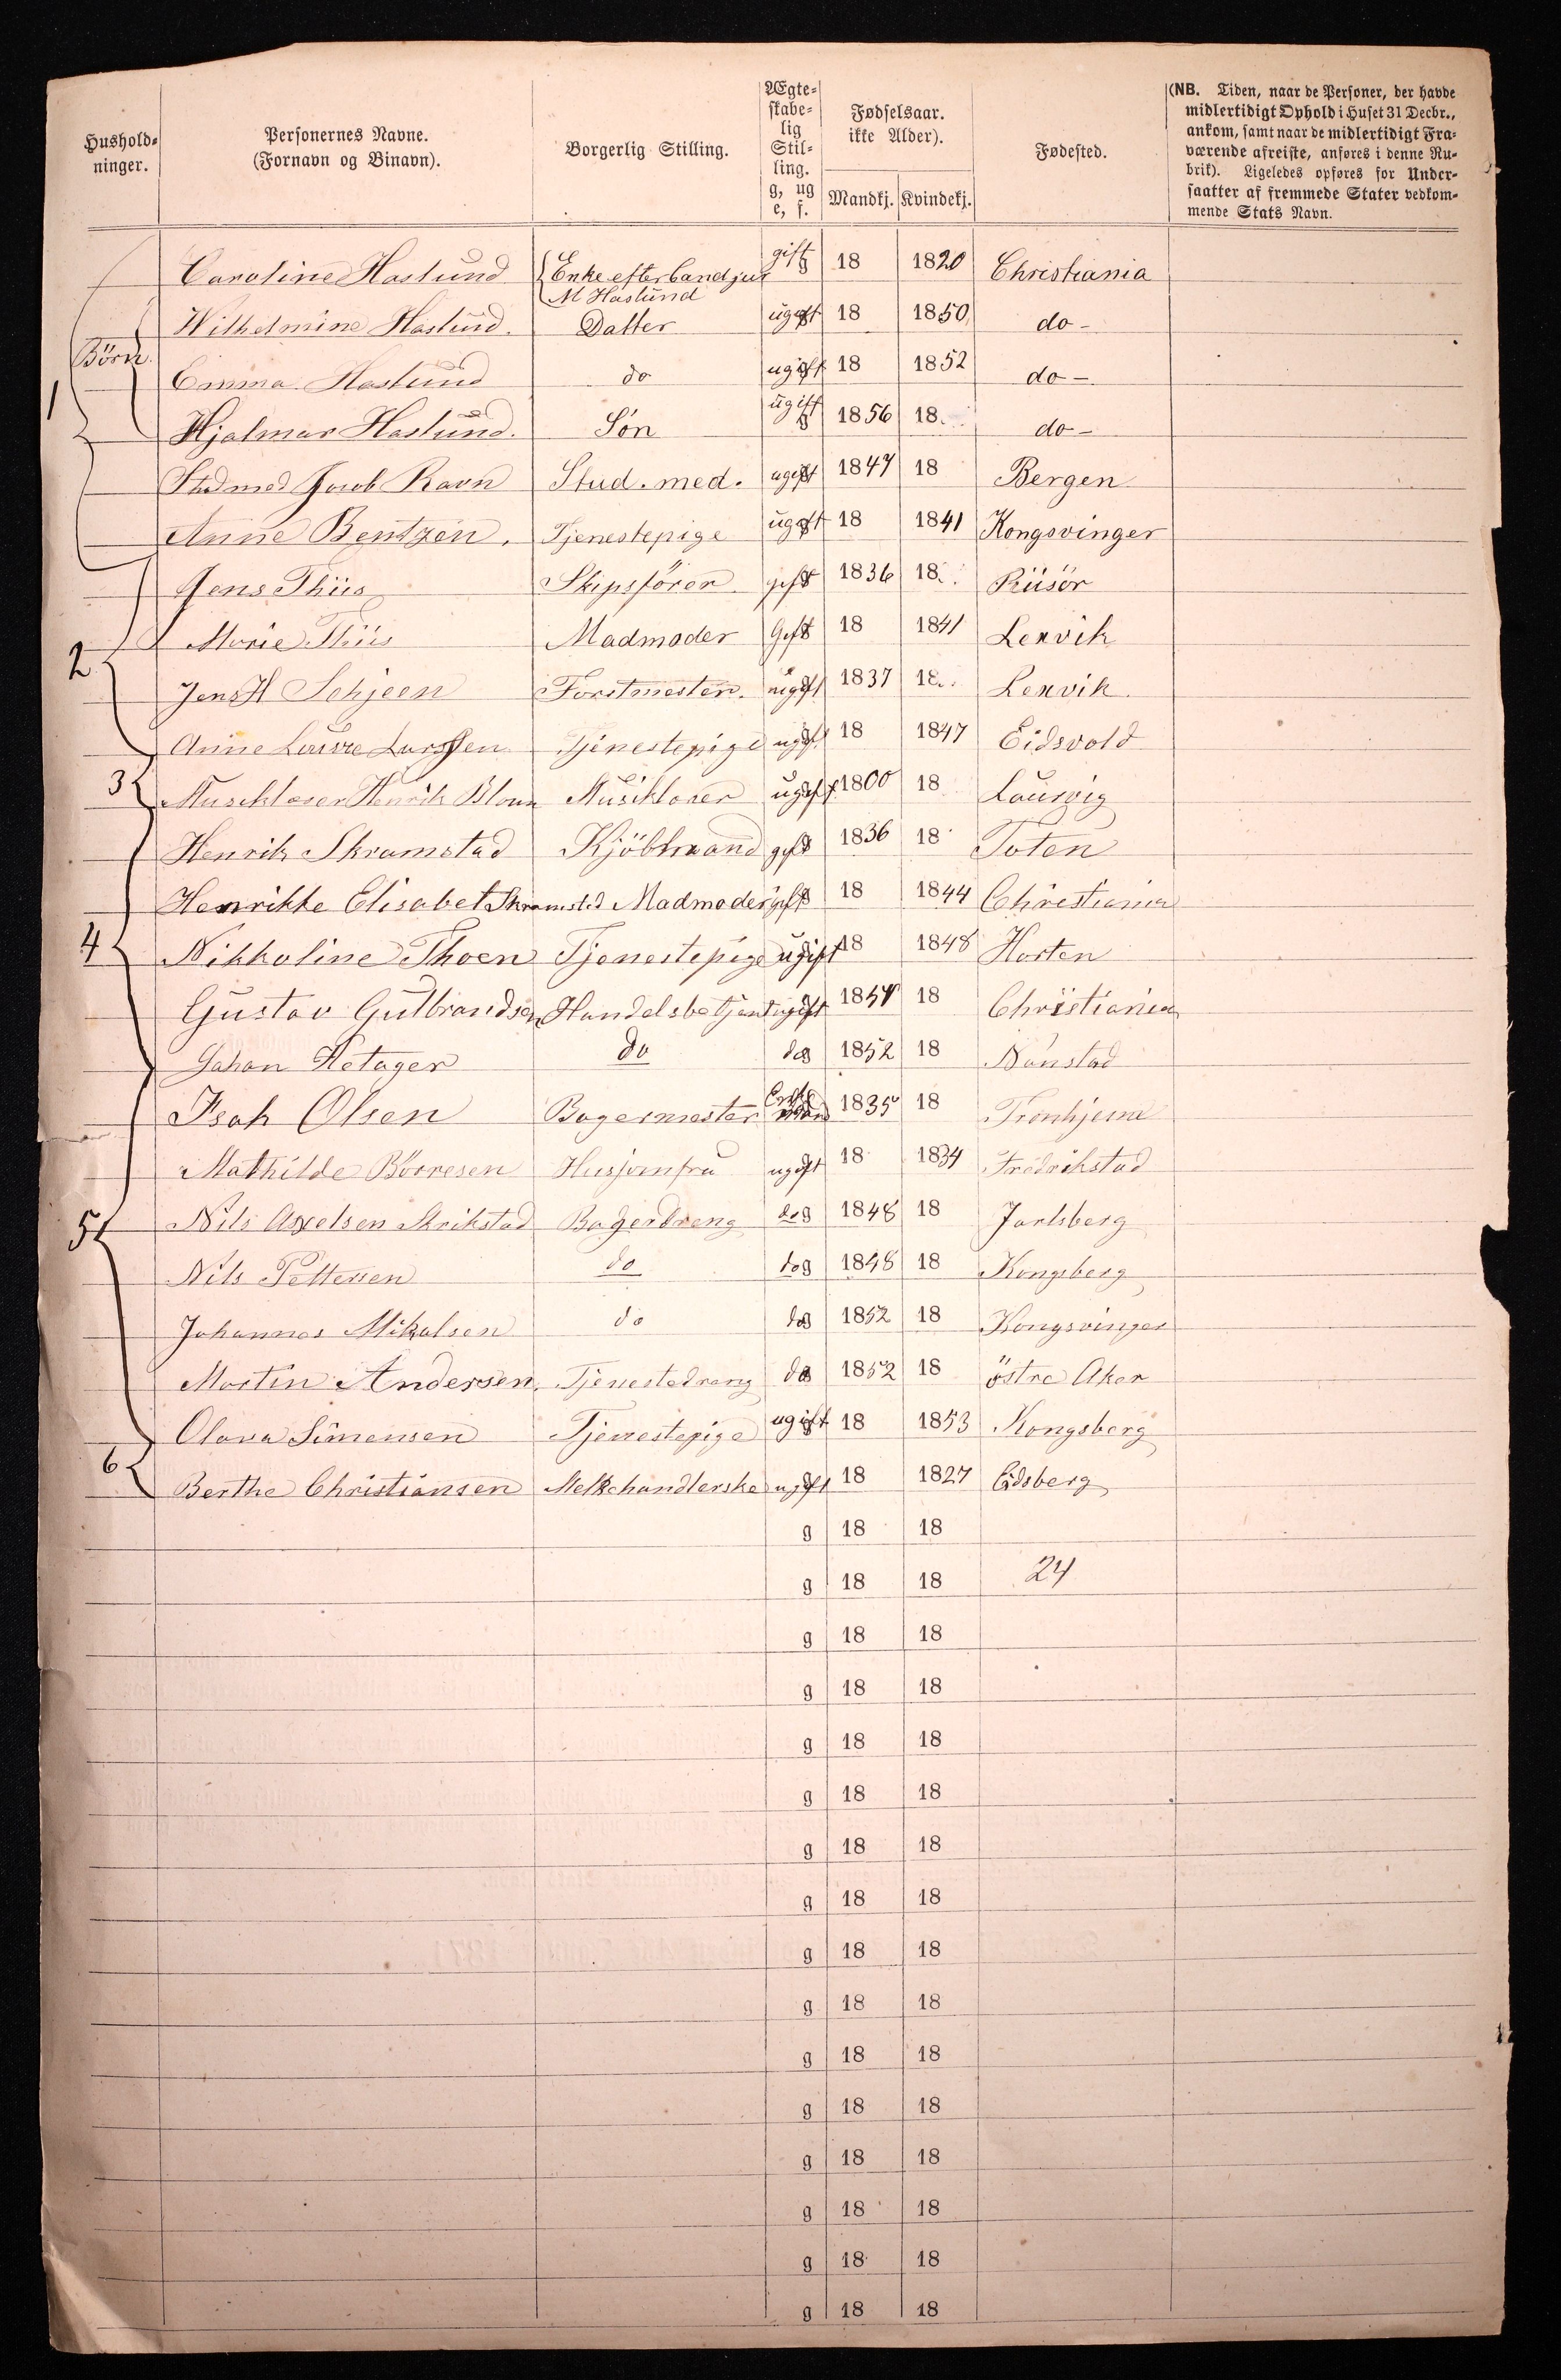 Hushold-
ninger.
Personernes Navne.
(Fornavn og Binavn).
Borgerlig Stilling.
Ægte-
skabe-
lig
Stil-
ling.
g, ug
e, f.
Fødselsaar.
ikke Alder).
Mandkj. Kvindekj.
Fødested.
(NB. Tiden, naar de Personer, der havde
midlertidigt Ophold i Huset 31 Decbr.,
ankom, samt naar de midlertidigt Fra-
værende afreiste, anføres i denne Ru-
brik). Ligeledes opføres for Under-
saatter af fremmede Stater vedkom-
mende Stats Navn.
Caroline Haslund Enke efter Cand jur gift g 18 1820 Christiania
M Haslund
Wilhelmine Haslund. Datter ugift 18 1850 do -
Börn
Emma Haslund do ugift 18 1852 do -
1 Hjalmar Haslund. Sön ugift g 1856 18 do -
Stud med Jacob Ravn Stud. med. ugift 1847 18 Bergen
Anne Bentzen. Tjenestepige ugift 18 1841 Kongsvinger
Jens Thiis Skipsförer gift 1836 18 Riisör
Marie Thiis Madmoder Gift 18 1841 Lexvik
2 Jens H Schjeen Forstmester. ugift 1837 18 Lexvik
Anne Lovise Larssen Tjenestepige ugift 18 1847 Eidsvold
3 Musiklærer Henrik Blom Musiklærer ugift 1800 18 Laurvig
Henrik Skramstad Kjöbmand gift 1836 18 Toten
Henrikke Elisabet Skramstad Madmoder gift 18 1844 Christiania
4 Nikkoline Thoen Tjenestepige ugift 18 1848 Horten
Gustav Gulbrandsen Handelsbetjent ugift 1854 18 Christiania
Johan Hetager do do g 1852 18 Nanstad
Isak Olsen Bagermester Enke mand 1835 18 Tronhjem
Mathilde Börresen Husjomfru ugift 18 1834 Fredrikstad
5 Nils Axelsen Skrikstad Bagerdreng do g 1848 18 Jarlsberg
Nils Pettersen do do g 1848 18 Kongsberg
Johannes Mikalsen do do g 1852 18 Kongsvinger
Martin Andersen. Tjenestedreng do g 1852 18 östre Aker
Olava Simensen Tjenestepige ugift 18 1853 Kongsberg
6 Berthe Christiansen Melkehandlerske ugift 18 1827 Eidsberg
g 18 18
g 18 18 24
g 18 18
g 18 18
g 18 18
g 18 18
g 18 18
g 18 18
g 18 18
g 18 18
g 18 18
g 18 18
g 18 18
g 18 18
g 18 18
g 18 18